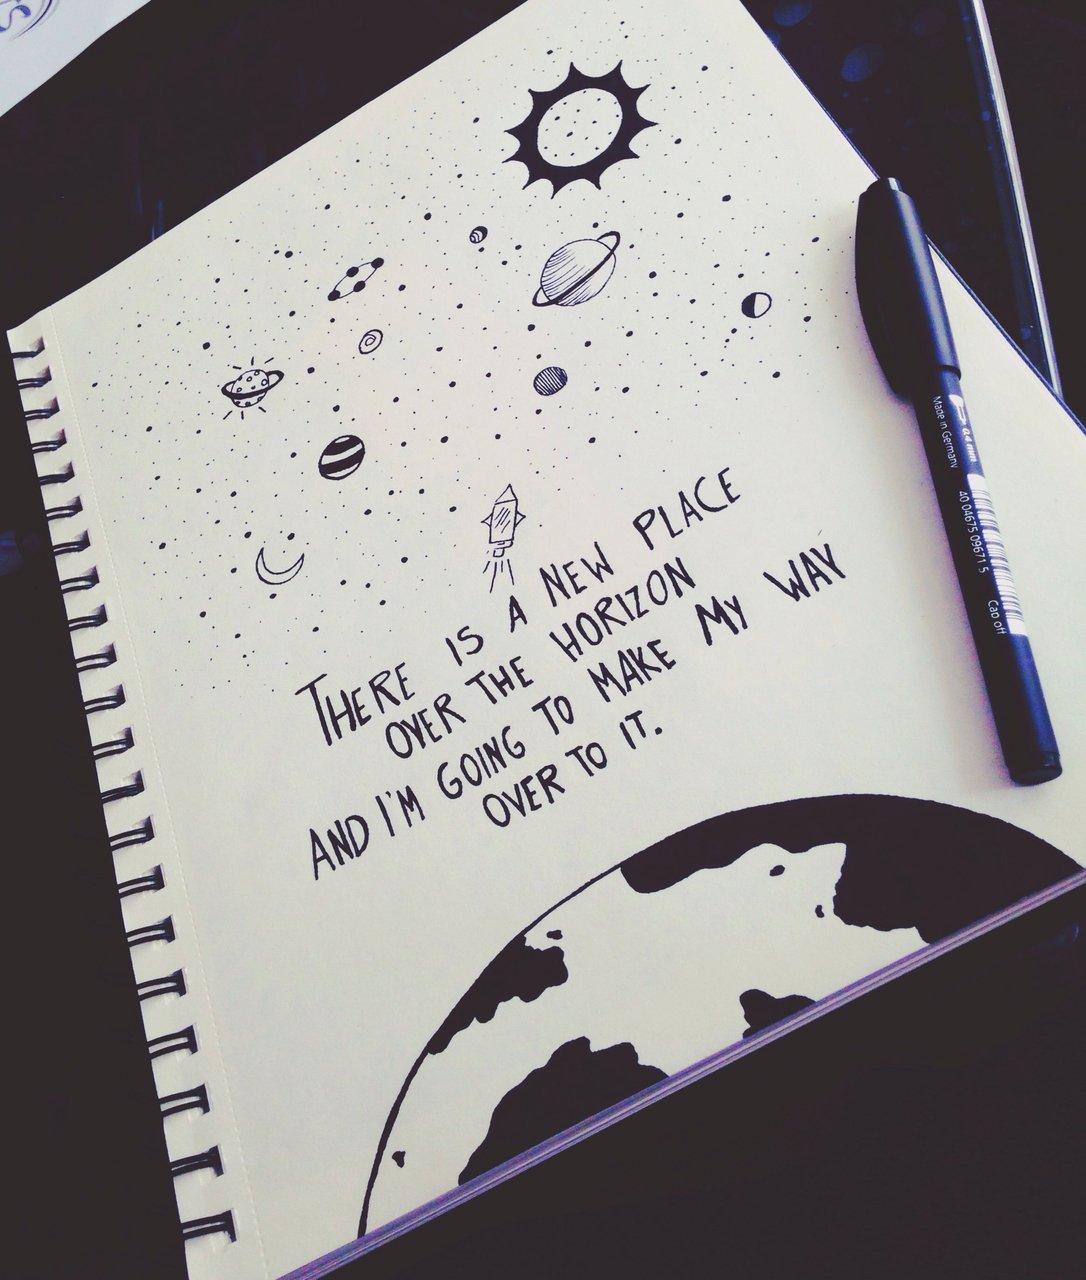 THERE IS A NEW PLACE
OVER THE HORIZON
AND I'M GOING TO MAKE MY WAY
OVER TO IT.
0.4 mm
Made in Germany
40 04675 09671 5
Cap off